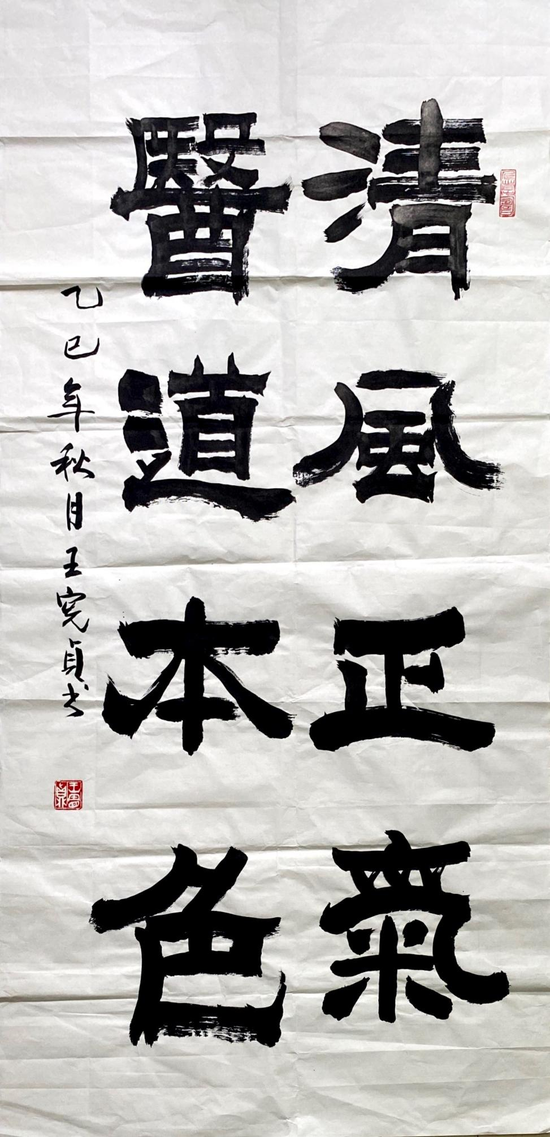 清風正氣
醫道本色
乙巳年秋月王宪貞书